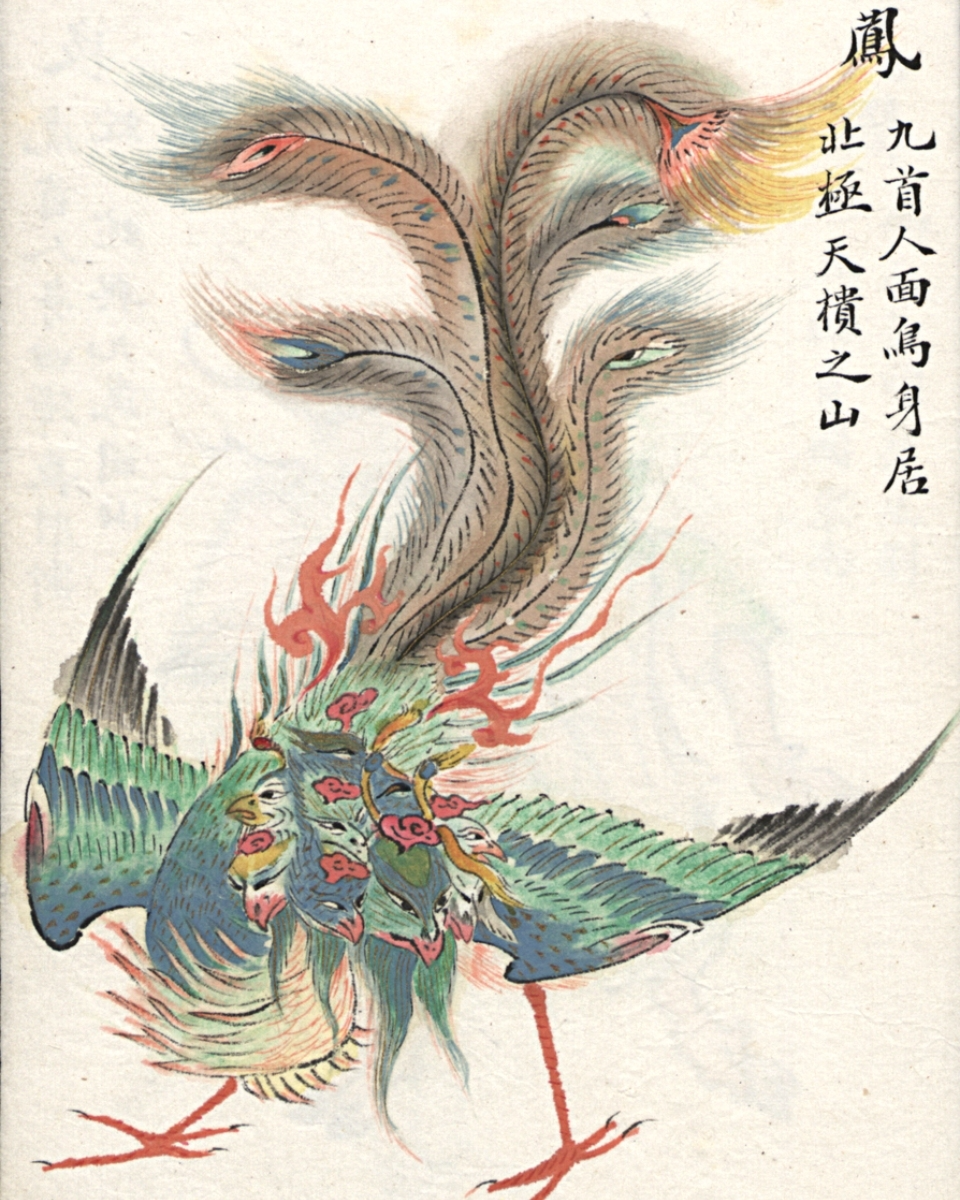 鳳
九首人面鳥身居
北極天樻之山